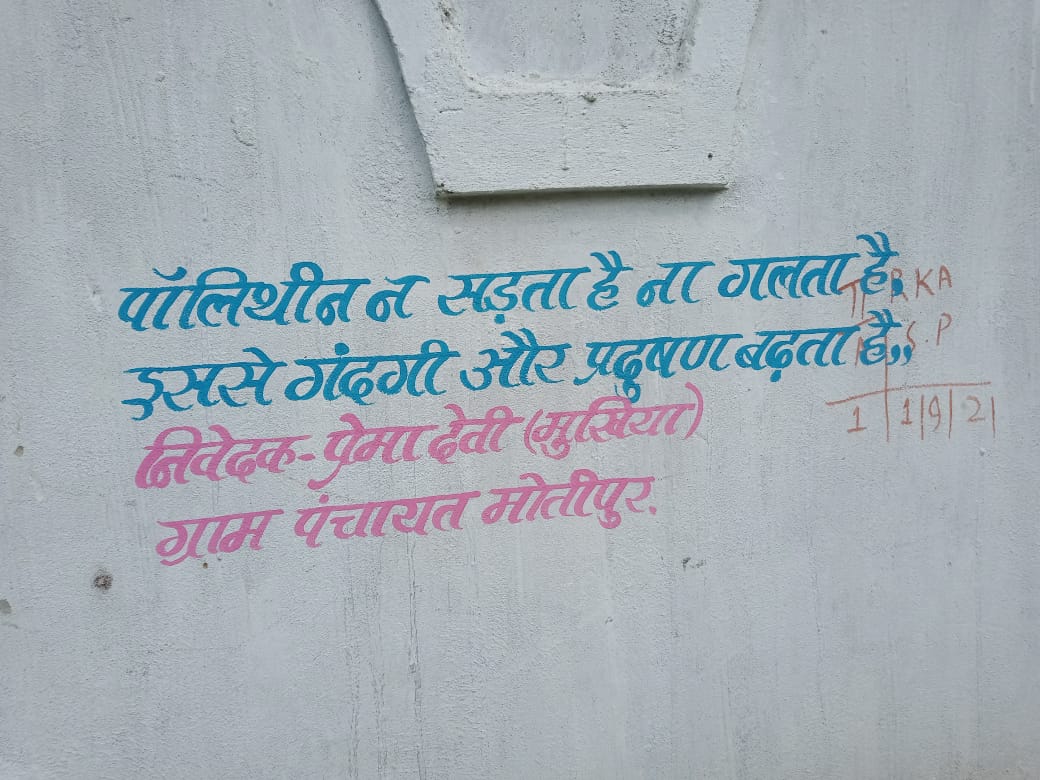 पॉलिथीन न सड़ता है ना गलता है,
इससे गंदगी और प्रदुषण बढ़ता है,,
निवेदक- प्रेमा देवी (मुखिया)
ग्राम पंचायत मोतीपुर.
RKA
S.P
1 1/9/21